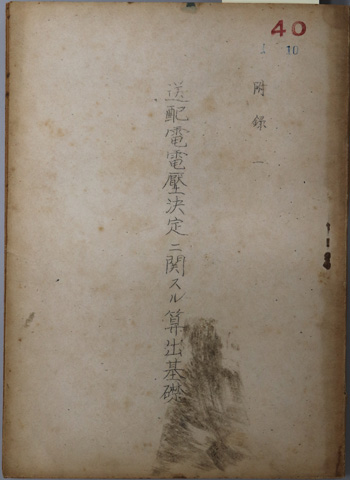 40
10
附錄一
送配電電壓決定ニ関スル算出基礎